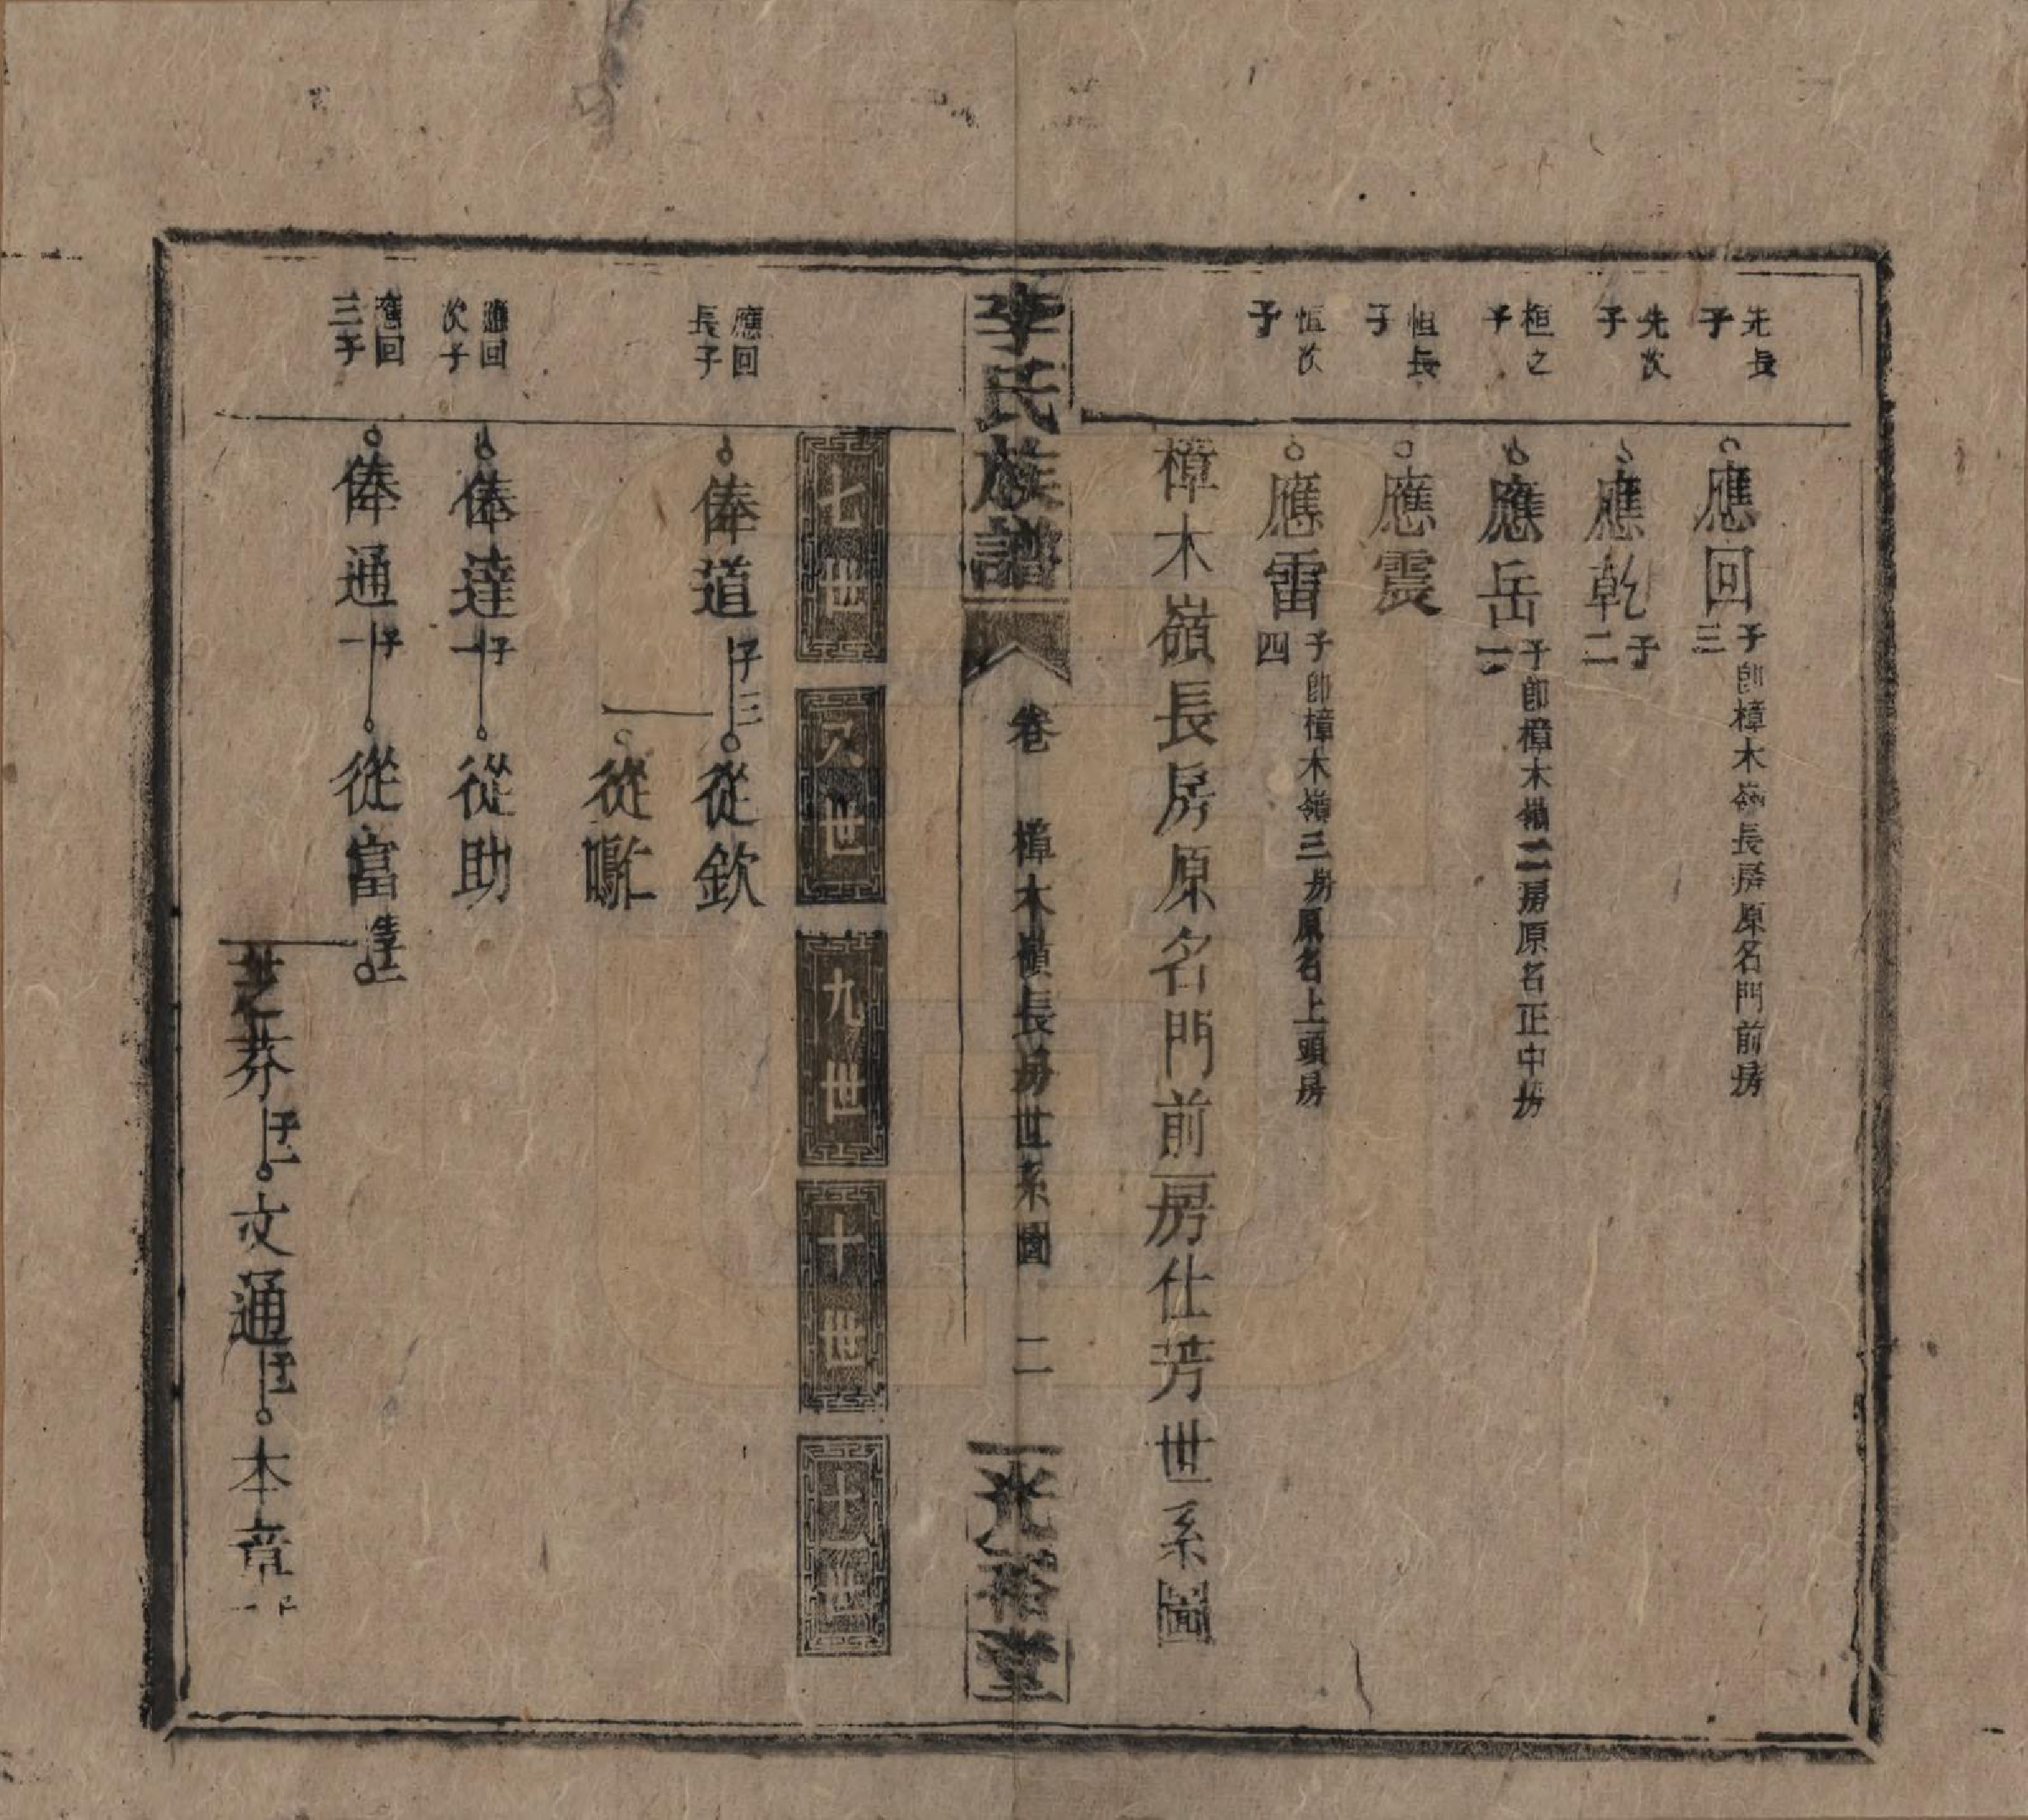 先長子
應回 子三 卽樟木嶺長房原名門前房
先次子
應乾 子二
桓之子
應岳 子二 卽樟木嶺二房原名正中房
恒長子
應震
恒次子
應雷 子四 卽樟木嶺三房原名上頭房
樟木嶺長房原名門前房仕芳世系圖
李氏族譜
卷 樟木嶺長房世系圖 二
光裕堂
七世
八世
九世
十世
十一世
應回長子
俸道 子三
從欽
從
應回次子
俸達 子一
從助
應回三子
俸通 子一
從富
芝芬 子一
文通
本章 子一